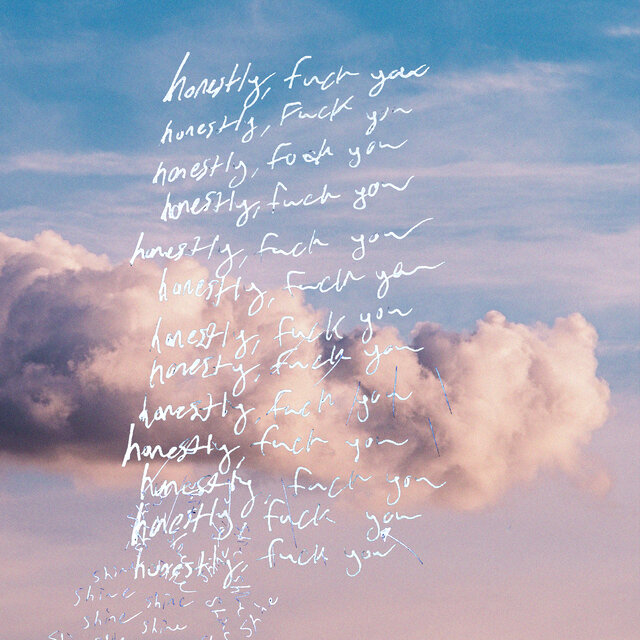 honestly, fuck you
honestly, Fuck you
honestly, fuck you
honestly, fuck you
honestly, fuck you
honestly, fuck you
honestly, fuck you
honestly, fuck you
honestly, fuck you
honestly, fuck you
honestly, fuck you
honestly, fuck you
honestly, fuck you
shine
shine
shine shine
shine shine
shine